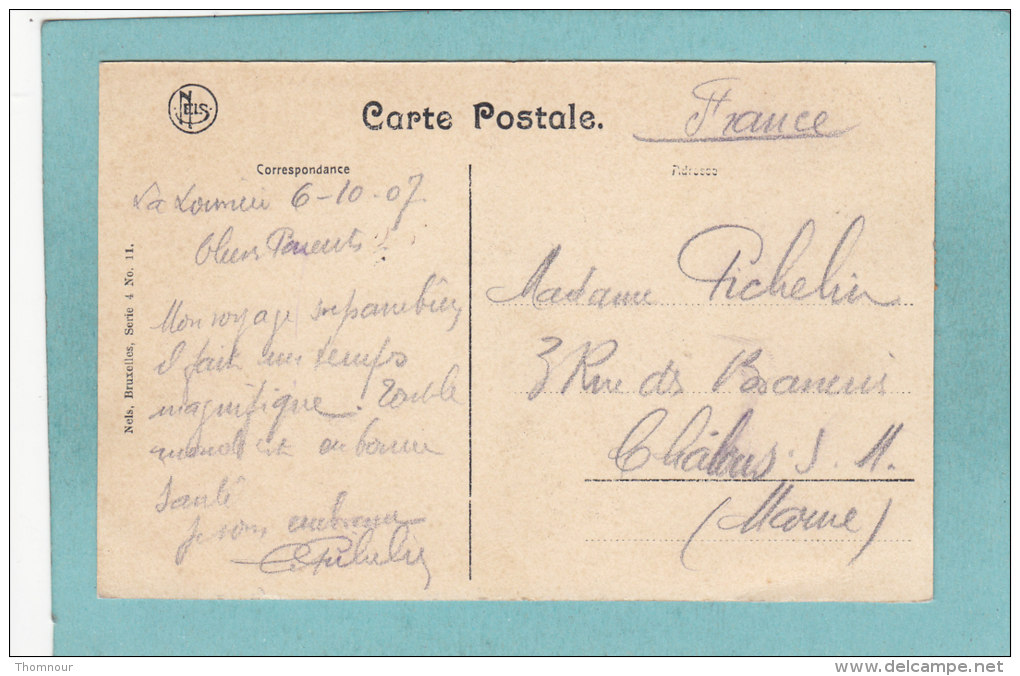 NELS
Carte Postale.
France
Correspondance
Adresse
La Louvière 6-10-07
Chers Parents
Mon voyage bien
il fait un temps
magnifique. Tout le
monde est en bonne
santé
Je vous embrasse
Madame Pichelin
3 Rue des
Châlons. S. M.
(Marne)
Nels, Bruxelles, Serie 4 No. 11.
Thomnour
www.delcampe.net